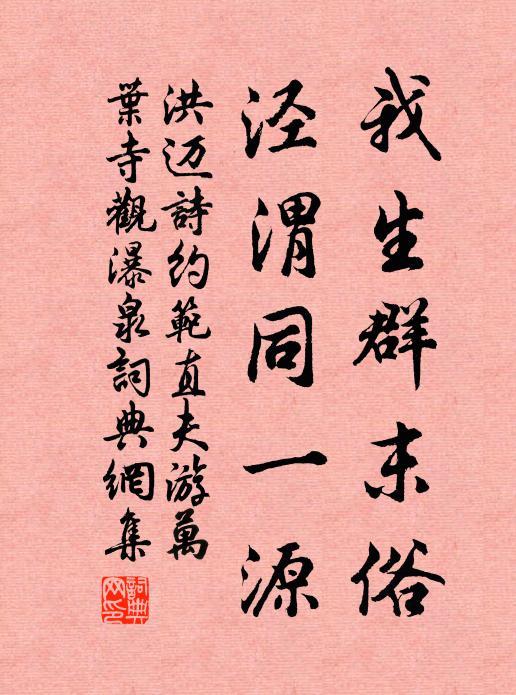 我生群末俗
泾渭同一源
洪迈詩约範直夫游萬
葉寺觀瀑泉詞典網集
詞典網印